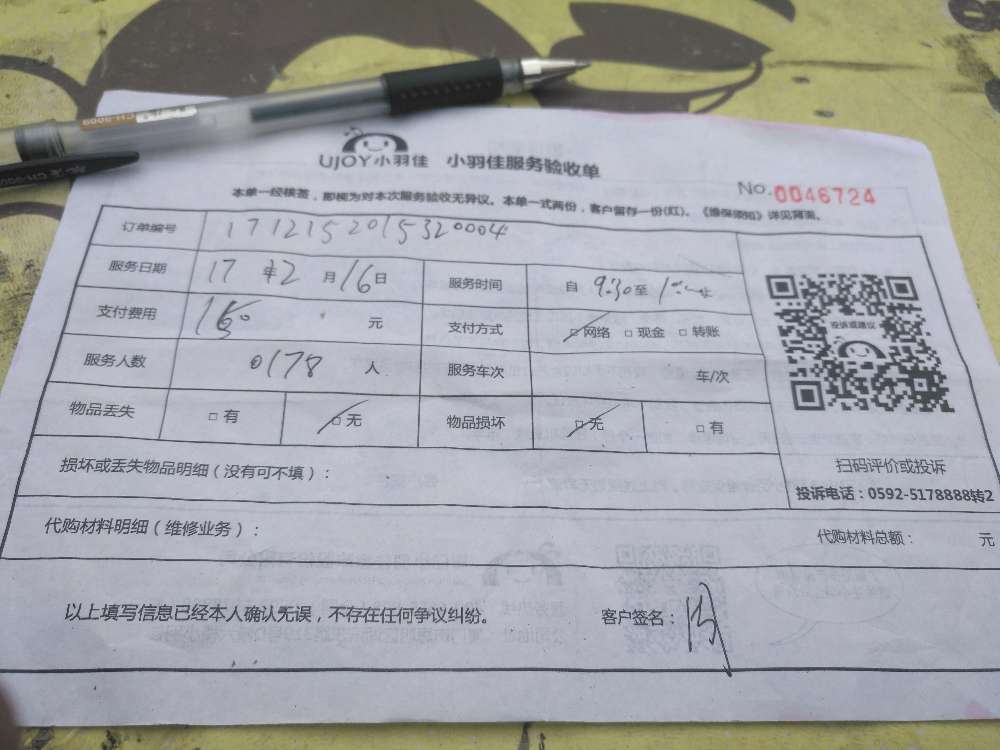 CH-3009
UJOY小羽佳 小羽佳服务验收单
No.0046724
本单一经核签，即视为对本次服务验收无异议。本单一式两份，客户留存一份(红)。《维保须知》详见背面。
订单编号 1712152015320004
服务日期 17年2月16日 服务时间 自9:30至
支付费用 元 支付方式 □网络 □现金 □转账
服务人数 0178人 服务车次 车/次
物品丢失 □有 □无 物品损坏 □无 □有
投诉或建议
扫码评价或投诉
投诉电话：0592-5178888转2
损坏或丢失物品明细（没有可不填）：
代购材料明细（维修业务）： 代购材料总额： 元
以上填写信息已经本人确认无误，不存在任何争议纠纷。 客户签名：